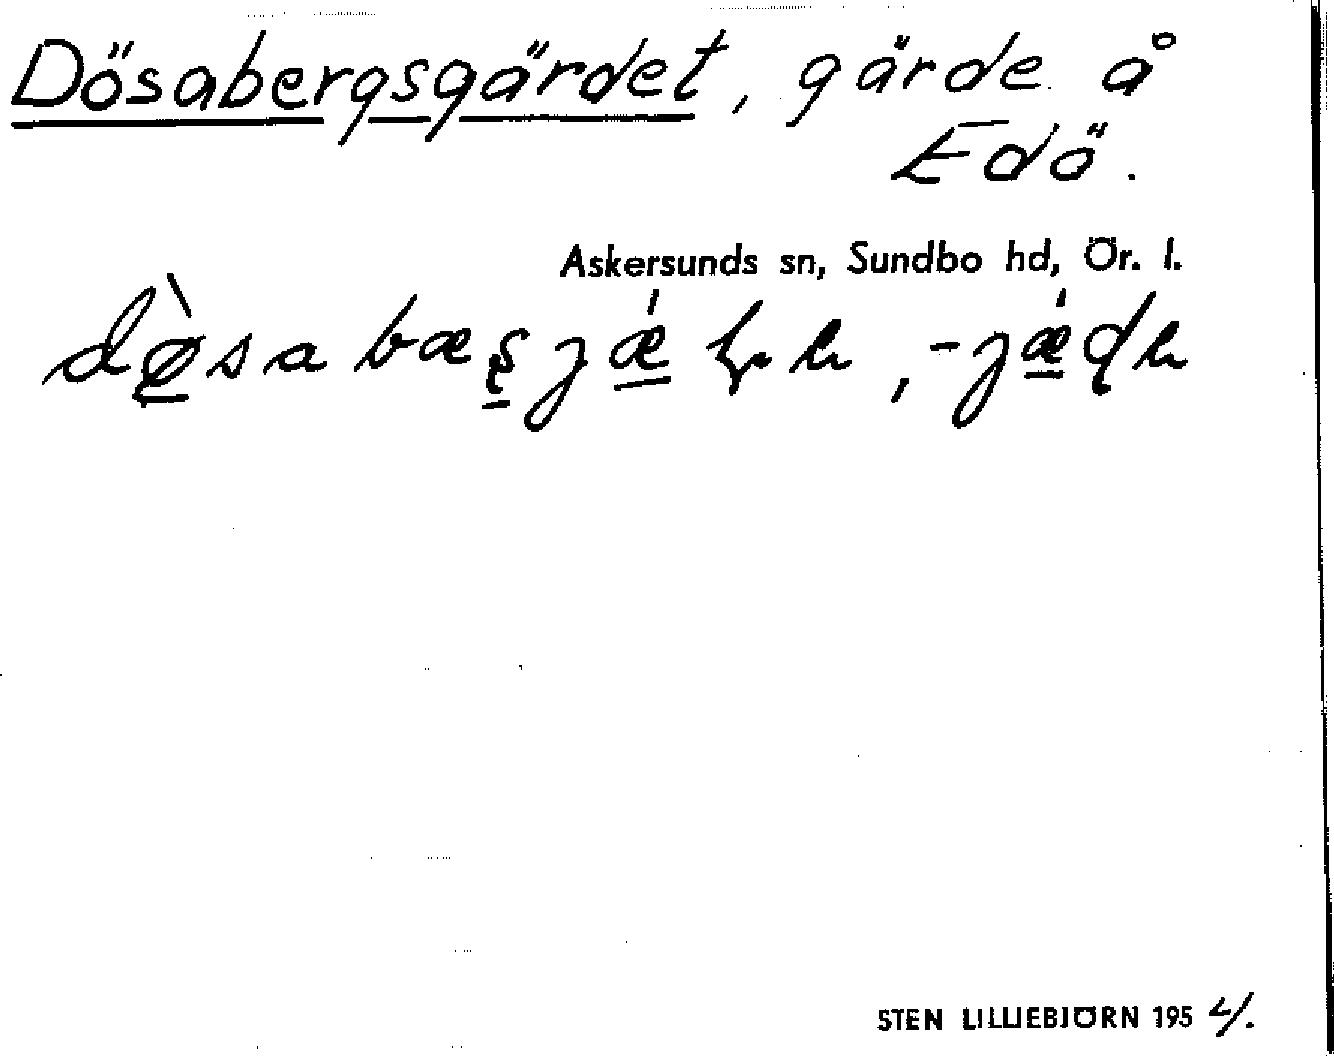 Dösabergsgärdet, gärde å
Edö.
Askersunds sn, Sundbo hd, Ör. l.
STEN LILLIEBJÖRN 195